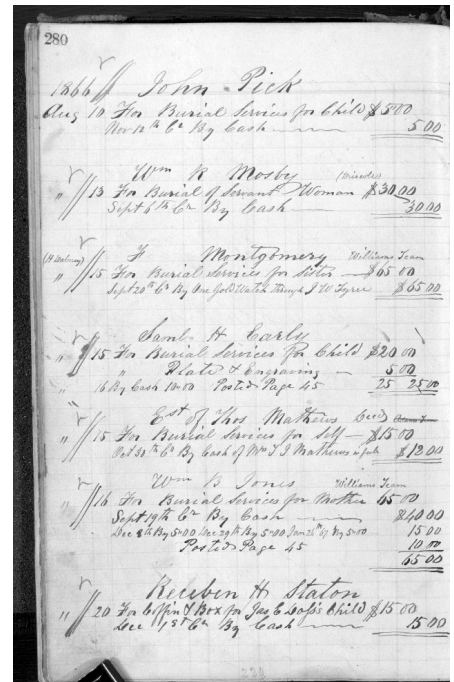 280
1866 John Pick
Aug 10 For Burial Services for Child $5 00
Nov 12th Cr By Cash 5 00
Wm R Mosby
" 13 For Burial of Servant Woman $30,00
Sept 6th Cr By Cash 30 00
F Montgomery Williams Team
" 15 For Burial Services for Sister $65 00
Sept 20th Cr By One Gold Watch through J W Tyree $65 00
Saml H Early
" 15 For Burial Services for Child $20 00
" Plate & Engraving 5 00
" 16 By Cash 10.00 Posted Page 45 25 25 00
Est of Thos Mathews Decd
" 15 For Burial Services for Self $15 00
Oct 30th Cr By Cash of Mrs T J Mathews in full $12 00
Wm B Jones Williams Team
" 16 For Burial Services for Mother 65 00
Sept 19th Cr By Cash $40 00
Dec 8th By 5.00 Dec 29th By 5.00 Jan 26th 67 By 5.00 15 00
Posted Page 45 10 00
65 00
Reuben H Staton
" 20 For Coffin & Box for Jas C Child $15 00
Dec 1st Cr By Cash 15 00